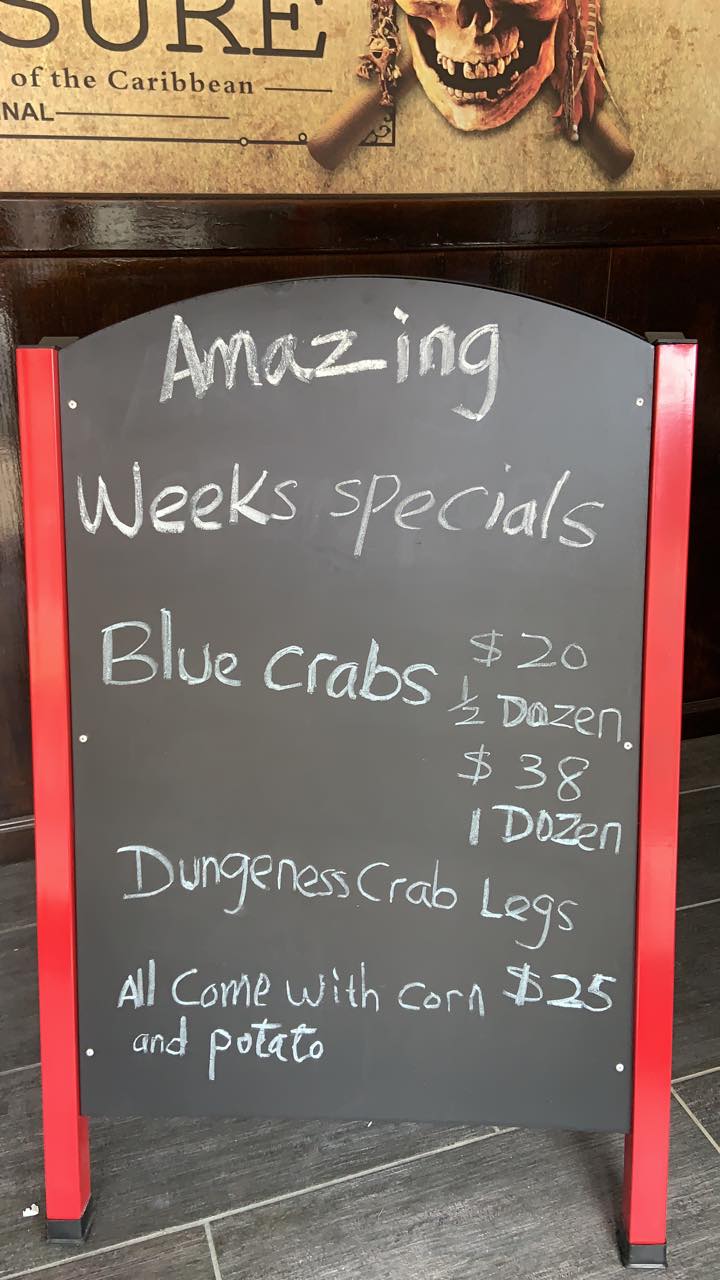 SURE
of the Caribbean
NAL
Amazing
Weeks specials
Blue Crabs $20
1/2 Dozen
$38
1 Dozen
Dungeness Crab Legs
All Come with corn $25
and potato